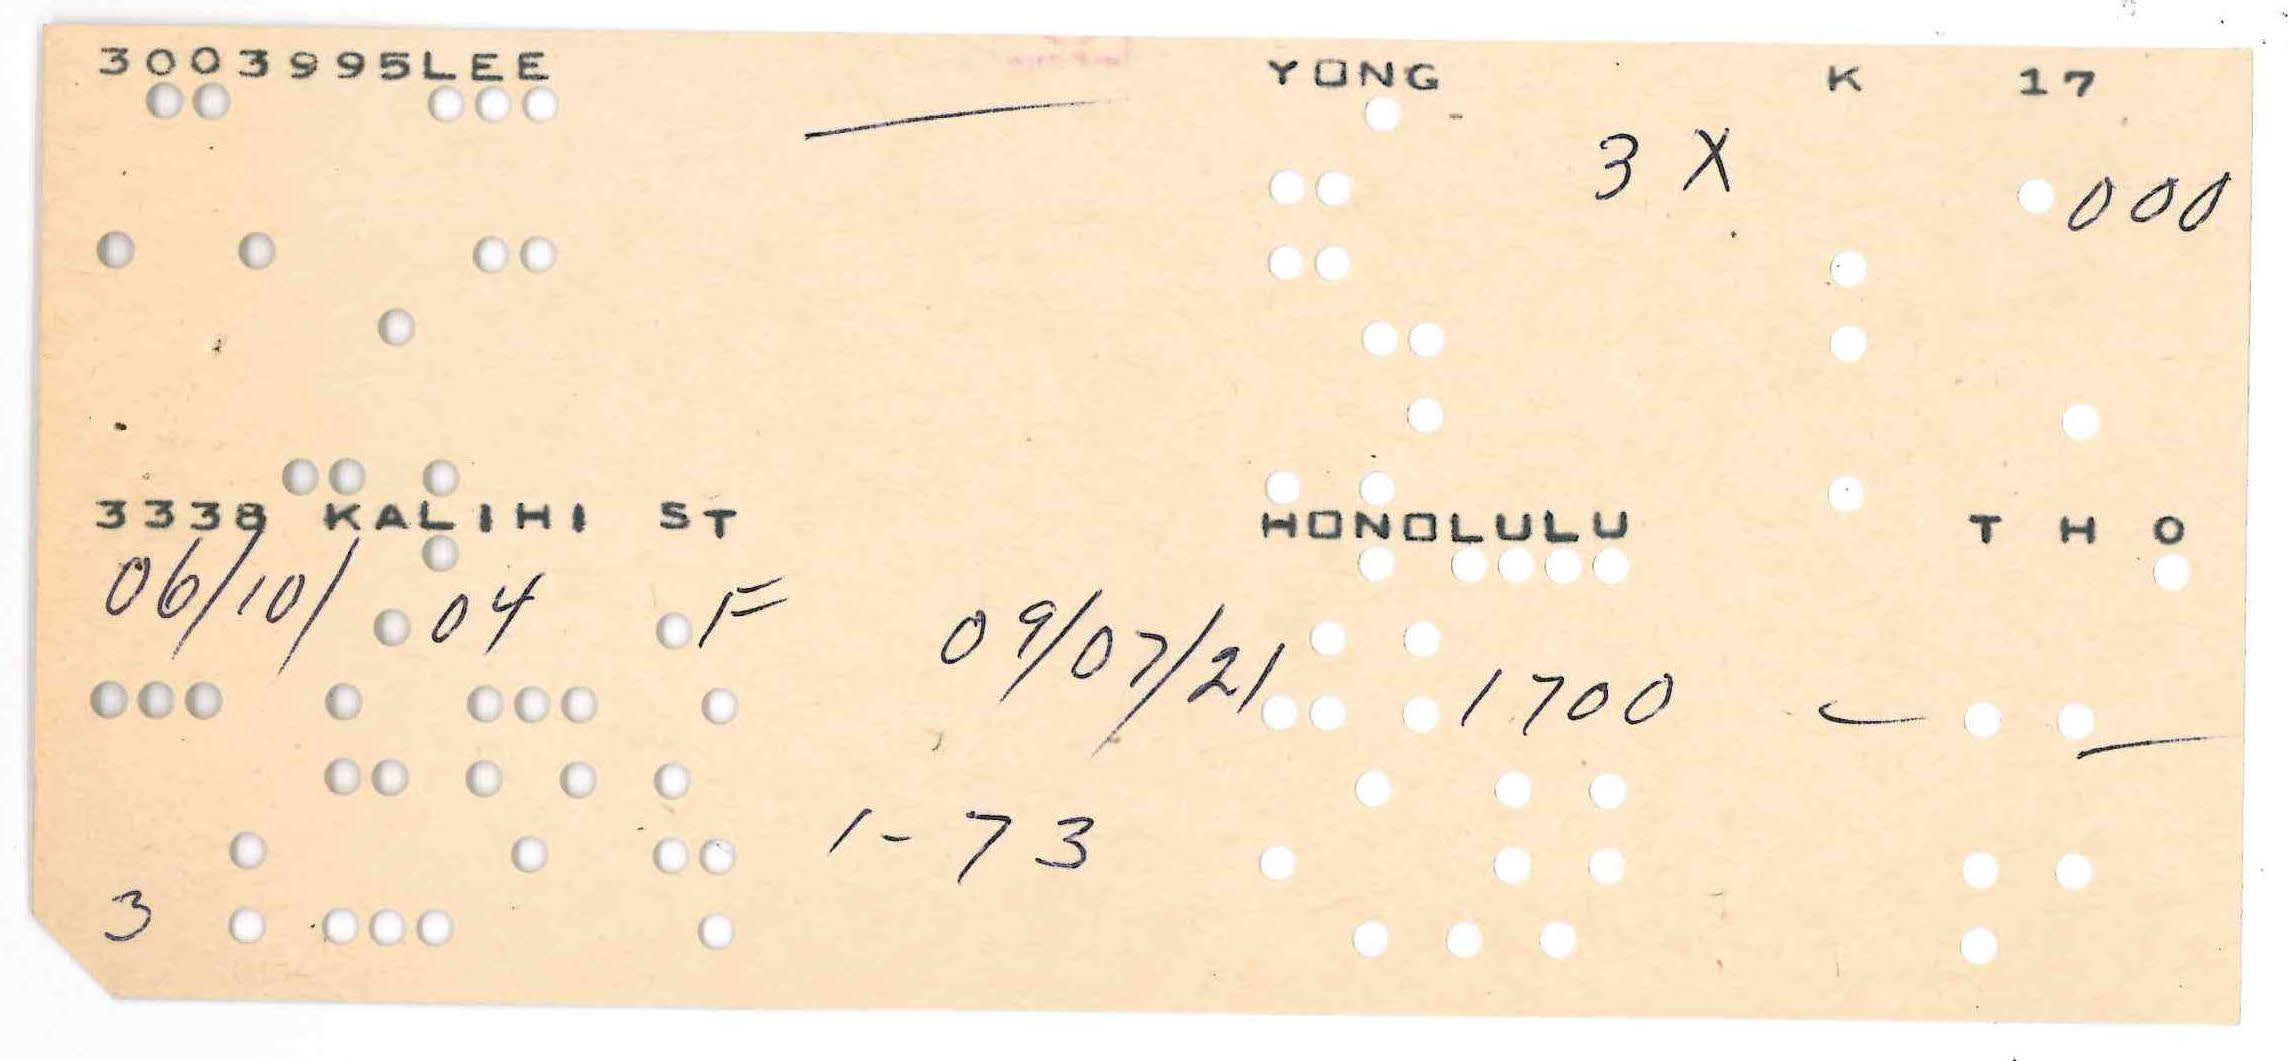 3003995LEE YONG K 17
3 X 000
3338 KALIHI ST HONOLULU T H O
06/10/04 F 09/07/21 1700
1-73
3